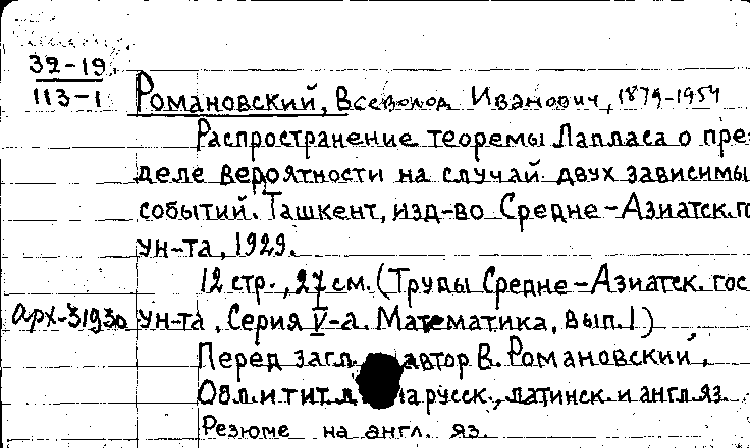 32-19
113-1
Романовский, Всеволод Иванович, 1879-1954
Распространение теоремы Лапласа о пре-
деле вероятности на случай двух зависимы
событий. Ташкент, изд-во Средне-Азиатск. г
ун-та, 1929.
12 стр., 27 см. (Труды Средне-Азиатск. гос
арх-31930 ун-та. Серия V-а. Математика, вып. 1)
Перед загл. автор В. Романовский.
Обл. и тит. л. на русск., латинск. и англ яз.
Резюме на англ. яз.